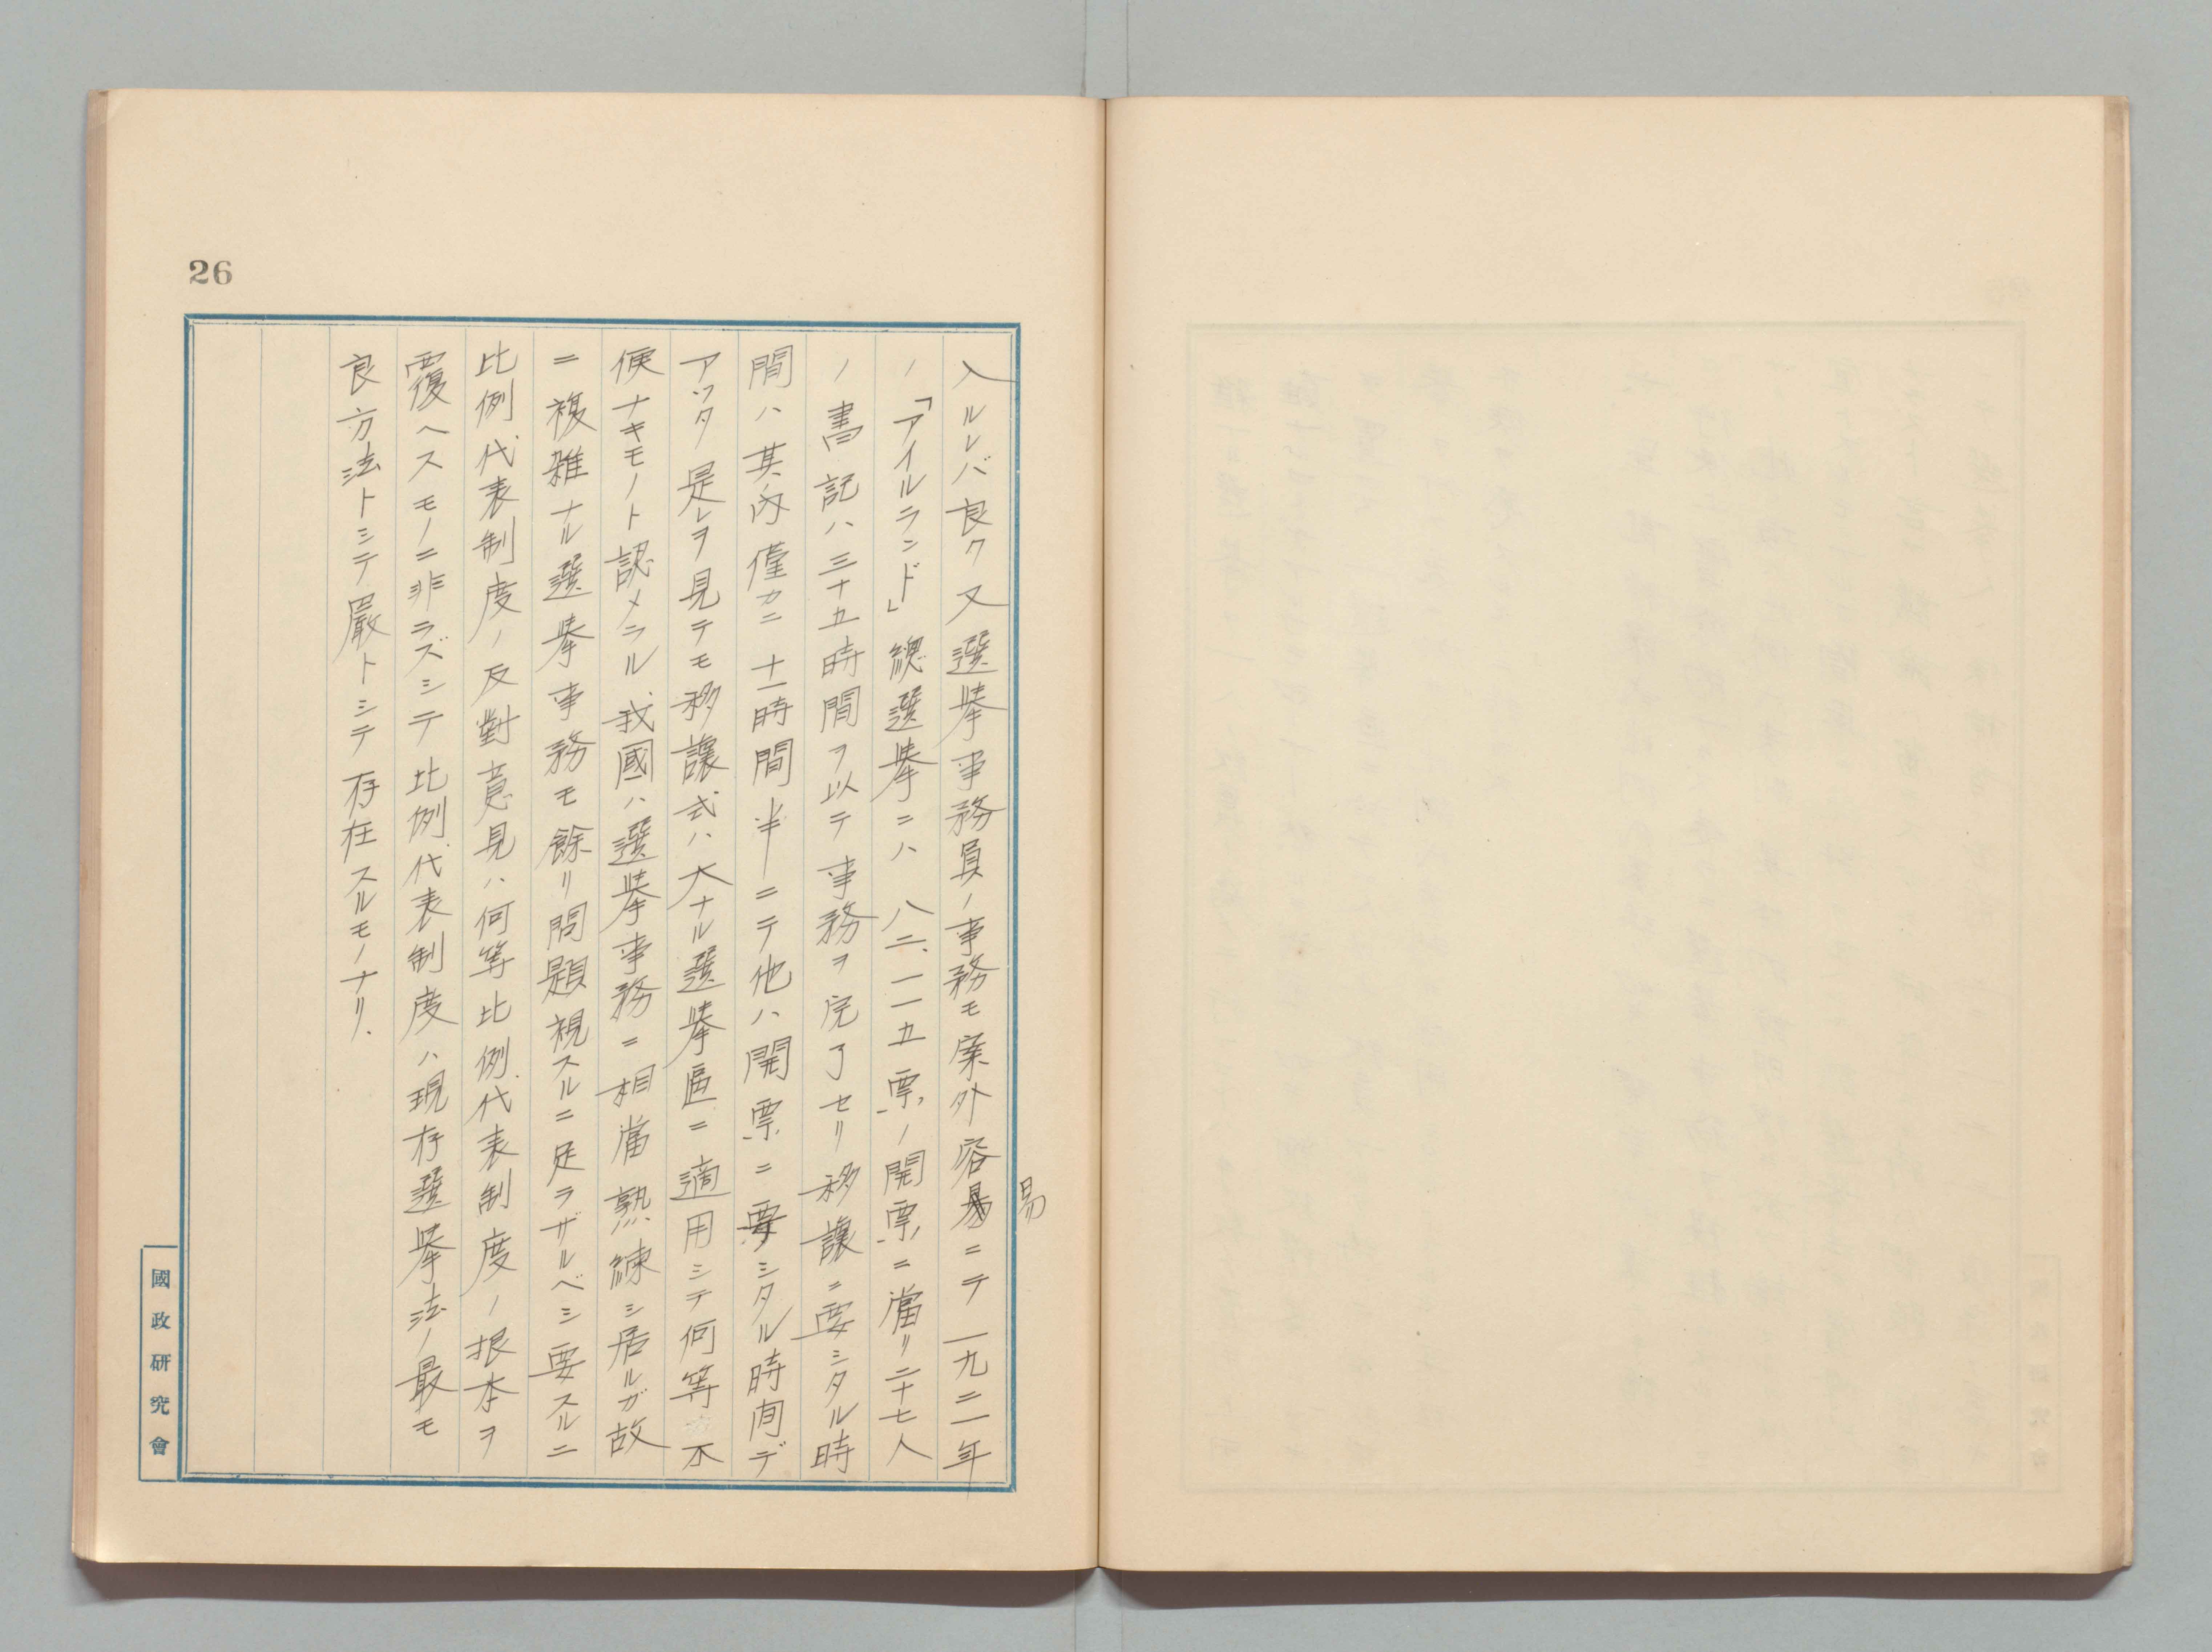 26
入ルレバ良ク又選挙事務員ノ事務モ案外容易ニテ一九二一年
易
ノ「アイルランド」總選挙ニハ八二、一一五票ノ開票ニ當リ二十七人
ノ書記ハ三十五時間ヲ以テ事務ヲ完了セリ移讓ニ要シタル時
間ハ其ノ内僅カニ十一時間半ニテ他ハ開票ニ要シタル時間デ
アツタ是レヲ見テモ移讓式ハ大ナル選挙區ニ適用シテ何等不
便ナキモノト認メラル我國ハ選挙事務ニ相當熟練シ居ルガ故
ニ複雑ナル選挙事務モ餘リ問題視スルニ足ラザルベシ要スルニ
比例代表制度ノ反對意見ハ何等比例代表制度ノ根本ヲ
覆ヘスモノニ非ラズシテ比例代表制度ハ現存選挙法ノ最モ
良方法トシテ嚴トシテ存在スルモノナリ、
國政研究會